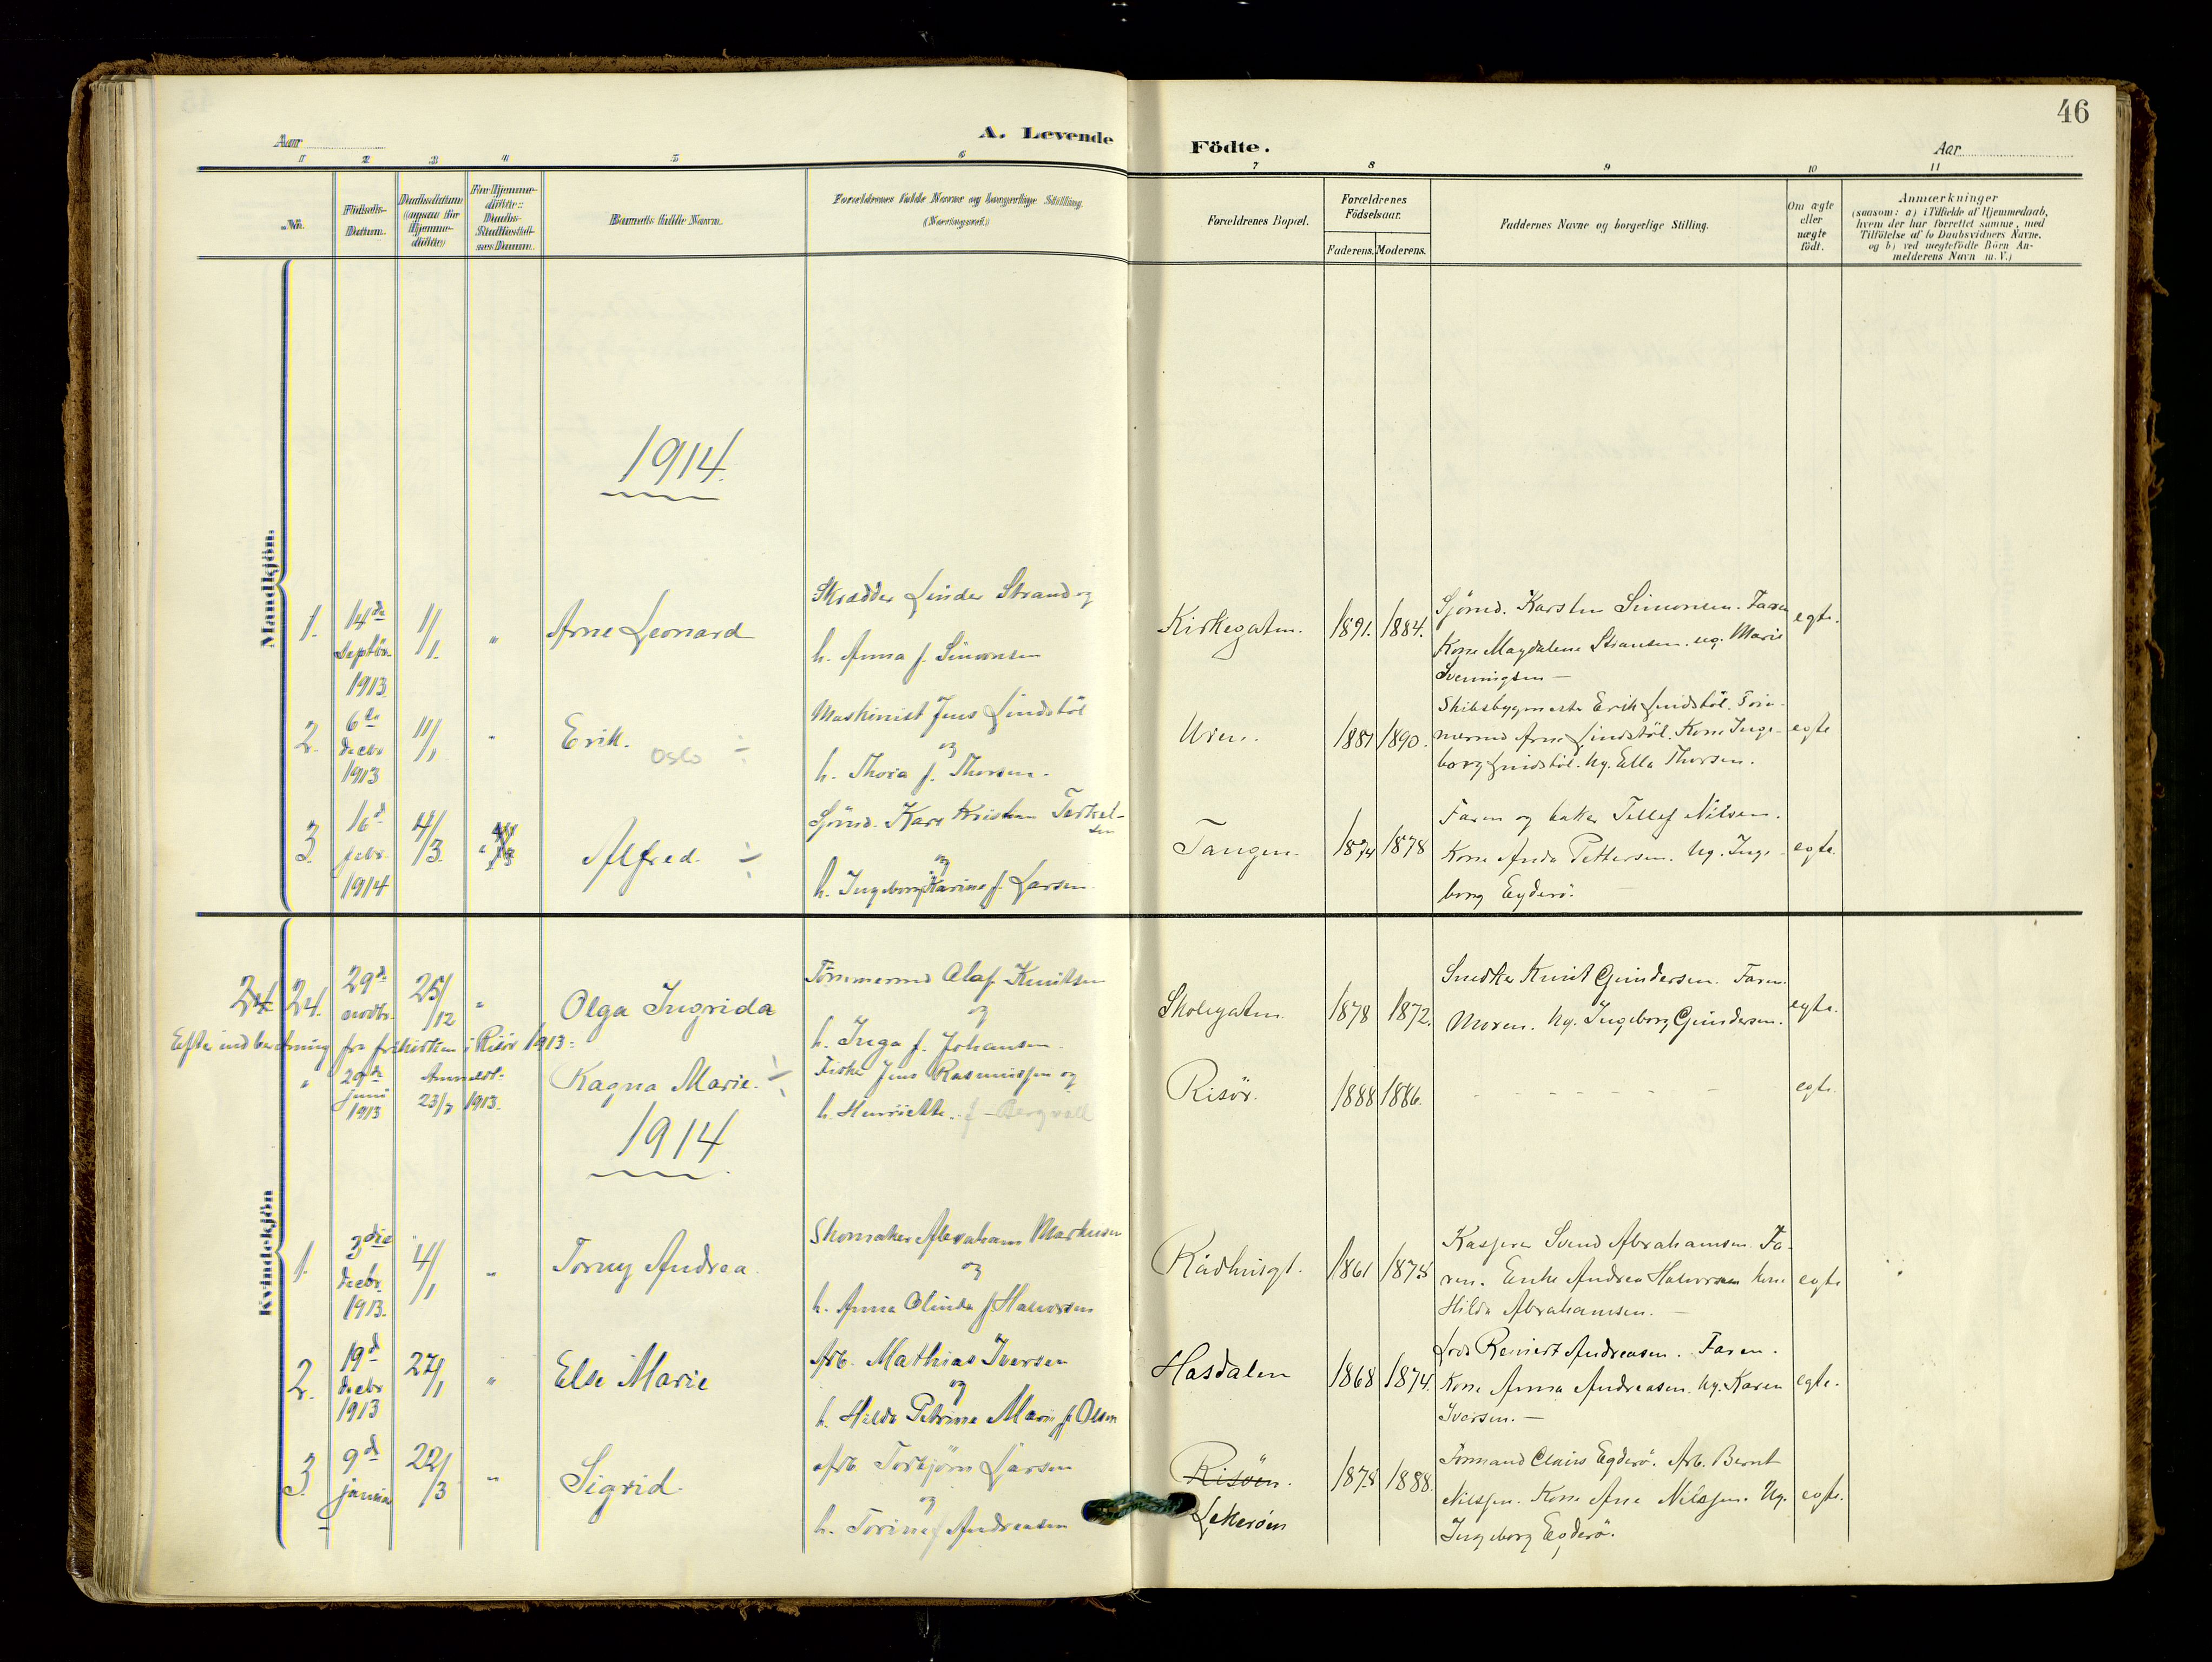 46
A. Levende Födte.
Aar
Aar
1 2 3 4 5 6 7 8 9 10 11
No.
Fødsels-Datum.
Daabsdatum (ogsaa for Hjemme-døbte)
For Hjemme-døbte: Daabs-Stadfæstelsens Datum.
Barnets fulde Navn.
Forældrenes fulde Navne og borgerlige Stilling.
(Næringsvei.)
Forældrenes Bopæl.
Forældrenes Födselsaar.
Faderens. Moderens.
Faddernes Navne og borgerlige Stilling.
Om ægte eller uægte födt.
Anmærkninger
(saasom: a) i Tilfælde af Hjemmedaab,
hvem der har forrettet samme, med
Tilföielse af to Daabsvidners Navne,
og b) ved uægtefödte Börn An-
melderens Navn m. V.)
Mandkjön.
1914.
1. 14de septbr. 1913 11/1 " Arne Leonard
Skrædder Linder Strand og
h. Anna f. Simonsen
Kirkegaten. 1891. 1884.
Sjömd. Karsten Simonsen. Faren
Kone Magdalene Strandsen. ug. Marie
Svenningsen —
egte.
2. 6te decbr 1913 11/1 " Erik. Oslo ÷
Maskinist Jens Lindstöl
og
h. Thora f. Thorsen.
Uren. 1887 1890.
Skibsbygmester Erik Lindstöl. Töm-
mermd Arne Lindstöl. Kone Inge-
borg Lindstöl. Ug. Ella Thorsen.
egte
3. 16d febr. 1914 4/3 " Alfred. ÷
Sjömd. Karl Kristian Terkel-
sen
og
h. Ingeborg Karine f. Larsen.
Tangen. 1874 1878
Faren og baker Tellef Nilsen.
Kone Anda Pettersen. Ug. Inge-
borg Egderö.
egte.
Kvindekjön
24 24. 29d novbr. 25/12 " Olga Ingrida
Tömmermd Olaf Knutsen
og
h. Inga f. Johansen.
Skolegaten. 1878 1872.
Snedker Knut Gundersen. Faren.
Moren. Ug. Ingeborg Gundersen.
egte.
Efter indberetning fra frikirken i Risör 1913:
" 29de juni 1913 Anmeldt 23/7 1913. Ragna Marie. ÷
Fisker Jens Rasmussen og
h. Henriette. f. Bergvall
Risör. 1888 1886. egte.
1914
1. 3die decbr. 1913. 4/1 " Torny Andrea.
Skomaker Abraham Markusen
og
h. Anna Olinda f Halvorsen
Rådhusgt. 1861 1875
Kasserer Svend Abrahamsen. Fa-
ren. Enke Andrea Halvorsen kone
Hilda Abrahamsen. —
egte
2. 19d decbr 1913 27/1 " Else Marie
Arb. Mathias Iversen
og
h. Hilda Petrine Marie f. Olsen
Hasdalen 1868 1874.
Lods Reinert Andreasen. Faren.
Kone Anna Andreasen. Ug. Karen
Iversen. —
egte.
3. 9d januar 22/3 " Sigrid.
Arb. Torbjörn Larsen
og
h. Torine f Andreasen
Risöen.
Lekeröen
1878 1888.
Formand Claus Egderö. Arb. Bernt
Nilssen. Kone Ane Nilssen. Ug.
Ingeborg Egderö.
egte.